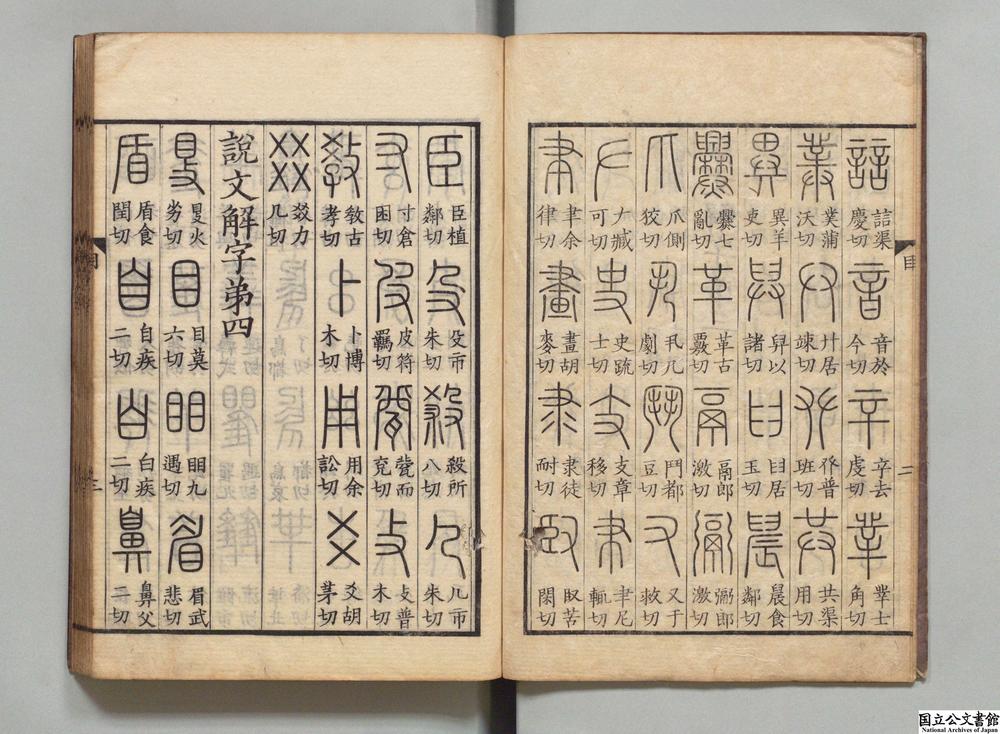 誩 誩渠慶切 音 音於今切 䇂 䇂去虔切 丵 丵士角切
菐 菐蒲沃切 廾 廾居竦切 𠬜 𠬜普班切 共 共渠用切
異 異羊吏切 舁 舁以諸切 𦥑 𦥑居玉切 晨 晨食鄰切
爨 爨七亂切 革 革古覈切 鬲 鬲郎激切 䰜 䰜郎激切
爪 爪側狡切 丮 丮几劇切 鬥 鬥都豆切 又 又于救切
𠂇 𠂇臧可切 史 史疏士切 支 支章移切 𦘒 𦘒尼輒切
聿 聿余律切 畫 畫胡麥切 隶 隶徒耐切 臤 臤苦閑切
臣 臣植鄰切 殳 殳市朱切 殺 殺所八切 𠘧 𠘧市朱切
寸 寸倉困切 皮 皮符羈切 㼱 㼱而兗切 攴 攴普木切
教 教古孝切 卜 卜博木切 用 用余訟切 爻 爻胡茅切
㸚 㸚力几切
說文解字弟四
𥄎 𥄎火劣切 目 目莫六切 䀠 䀠九遇切 眉 眉武悲切
盾 盾食閏切 自 自疾二切 白 白疾二切 鼻 鼻父二切
目 二
目 三
国立公文書館
National Archives of Japan